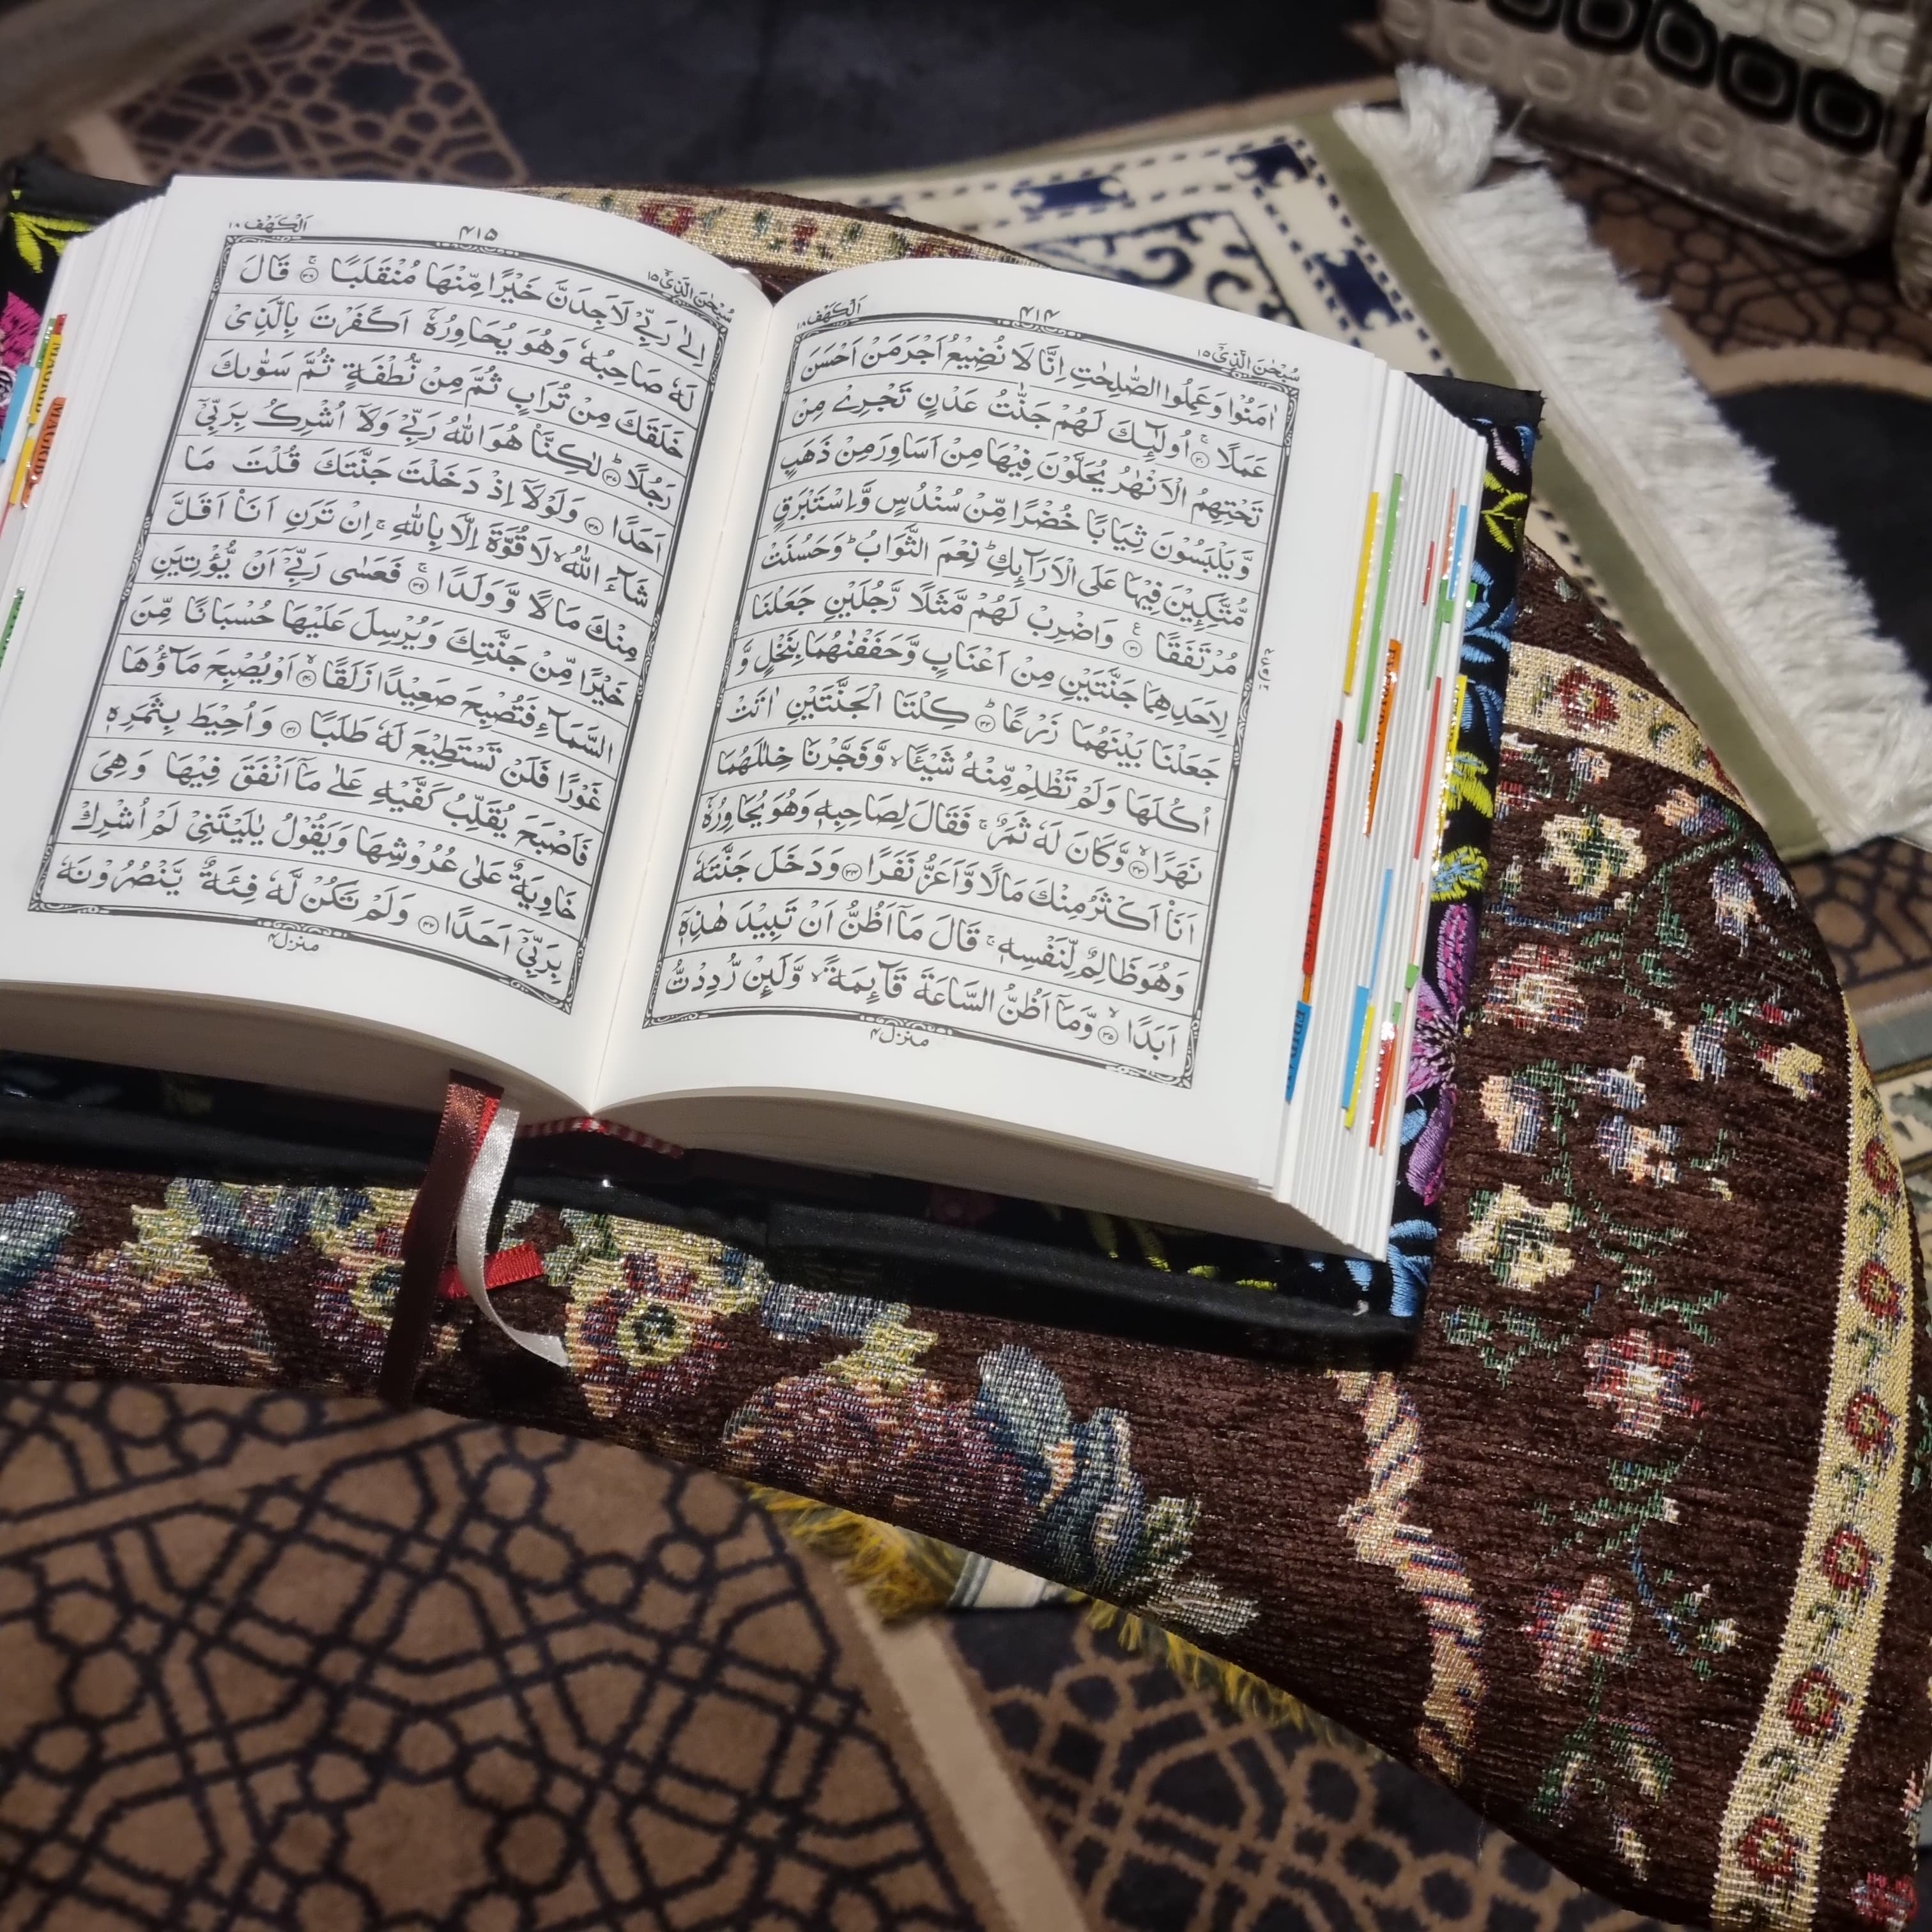 سُبۡحٰنَ الَّذِیۡۤ ۱۵
۴۱۴
اَلۡكَهۡف ۱۸
اٰمَنُوۡا وَعَمِلُوا الصّٰلِحٰتِ اِنَّا لَا نُضِيۡعُ اَجۡرَ مَنۡ اَحۡسَنَ
عَمَلًا ۚ‏ ﴿۳۰﴾ اُولٰٓٮِٕكَ لَهُمۡ جَنّٰتُ عَدۡنٍ تَجۡرِىۡ مِنۡ
تَحۡتِهِمُ الۡاَنۡهٰرُ يُحَلَّوۡنَ فِيۡهَا مِنۡ اَسَاوِرَ مِنۡ ذَهَبٍ
وَّيَلۡبَسُوۡنَ ثِيَابًا خُضۡرًا مِّنۡ سُنۡدُسٍ وَّاِسۡتَبۡرَقٍ
مُّتَّكِـِٕيۡنَ فِيۡهَا عَلَى الۡاَرَآٮِٕكِ‌ؕ نِعۡمَ الثَّوَابُ ؕ وَحَسُنَتۡ
مُرۡتَفَقًا ﴿۳۱﴾ وَاضۡرِبۡ لَهُمۡ مَّثَلًا رَّجُلَيۡنِ جَعَلۡنَا
لِاَحَدِهِمَا جَنَّتَيۡنِ مِنۡ اَعۡنَابٍ وَّحَفَفۡنٰهُمَا بِنَخۡلٍ وَّ
جَعَلۡنَا بَيۡنَهُمَا زَرۡعًا ؕ‏ ﴿۳۲﴾ كِلۡتَا الۡجَـنَّتَيۡنِ اٰتَتۡ
اُكُلَهَا وَلَمۡ تَظۡلِمۡ مِّنۡهُ شَيۡـًٔـا‌ ۙ وَّفَجَّرۡنَا خِلٰلَهُمَا
نَهَرًا ۙ‏ ﴿۳۳﴾ وَّكَانَ لَهٗ ثَمَرٌ‌ ۚ فَقَالَ لِصَاحِبِهٖ وَهُوَ يُحَاوِرُهٗۤ
اَنَا اَكۡثَرُ مِنۡكَ مَالًا وَّاَعَزُّ نَفَرًا ﴿۳۴﴾ وَدَخَلَ جَنَّتَهٗ
وَهُوَ ظَالِمٌ لِّنَفۡسِهٖ‌ ۚ قَالَ مَاۤ اَظُنُّ اَنۡ تَبِيۡدَ هٰذِهٖۤ
اَبَدًا ۙ‏ ﴿۳۵﴾ وَّمَاۤ اَظُنُّ السَّاعَةَ قَآٮِٕمَةً ۙ وَّلَٮِٕنۡ رُّدِدْتُّ
منزل ۴
سُبۡحٰنَ الَّذِیۡۤ ۱۵
۴۱۵
اَلۡكَهۡف ۱۸
اِلٰى رَبِّىۡ لَاَجِدَنَّ خَيۡرًا مِّنۡهَا مُنۡقَلَبًا‌ ۚ‏ ﴿۳۶﴾ قَالَ
لَهٗ صَاحِبُهٗ وَهُوَ يُحَاوِرُهٗۤ اَكَفَرۡتَ بِالَّذِىۡ
خَلَقَكَ مِنۡ تُرَابٍ ثُمَّ مِنۡ نُّطۡفَةٍ ثُمَّ سَوّٰٮكَ
رَجُلًاؕ‏ ﴿۳۷﴾ لٰـكِنَّا۟ هُوَ اللّٰهُ رَبِّىۡ وَلَاۤ اُشۡرِكُ بِرَبِّىۡۤ
اَحَدًا‏ ﴿۳۸﴾ وَلَوۡلَاۤ اِذۡ دَخَلۡتَ جَنَّتَكَ قُلۡتَ مَا
شَآءَ اللّٰهُ ۙ لَا قُوَّةَ اِلَّا بِاللّٰهِ‌ ۚ اِنۡ تَرَنِ اَنَا اَقَلَّ
مِنۡكَ مَالًا وَّوَلَدًا‌ ۚ‏ ﴿۳۹﴾ فَعَسٰى رَبِّىۡۤ اَنۡ يُّؤۡتِيَنِ
خَيۡرًا مِّنۡ جَنَّتِكَ وَيُرۡسِلَ عَلَيۡهَا حُسۡبَانًا مِّنَ
السَّمَآءِ فَتُصۡبِحَ صَعِيۡدًا زَلَـقًا ۙ‏ ﴿۴۰﴾ اَوۡ يُصۡبِحَ مَآؤُهَا
غَوۡرًا فَلَنۡ تَسۡتَطِيۡعَ لَهٗ طَلَبًا‏ ﴿۴۱﴾ وَاُحِيۡطَ بِثَمَرِهٖ
فَاَصۡبَحَ يُقَلِّبُ كَفَّيۡهِ عَلٰى مَاۤ اَنۡفَقَ فِيۡهَا وَهِىَ
خَاوِيَةٌ عَلٰى عُرُوۡشِهَا وَيَقُوۡلُ يٰلَيۡتَنِىۡ لَمۡ اُشۡرِكۡ
بِرَبِّىۡۤ اَحَدًا‏ ﴿۴۲﴾ وَلَمۡ تَكُنۡ لَّهٗ فِئَةٌ يَّنۡصُرُوۡنَهٗ
منزل ۴